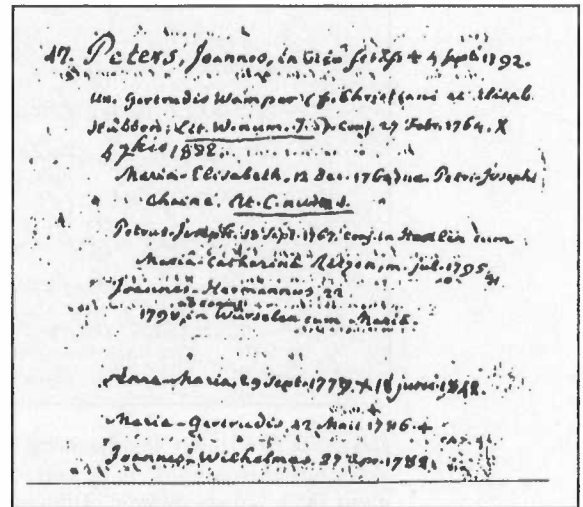 47. Peters, Joannes, in + 4 sept. 1792.
ux. Gertrudis Wampar (f. Christiani et Elisab.
Hübben, Lit. W. num. 7.) conj. 27 Febr. 1764. X
1832.
Maria-Elisabeth, 12 dec. 1764 Petri-Josephi
Chaine. Lit. C. num.
Petrus-Joseph. sept. 1767. conj. in dum
Maria Catharina m. jul. 1795
Joannes-Hermannus 22
1798, in Würselen cum Maria
Anna-Maria, 29 sept. + 18 junii 1848.
Maria-Gertrudis, 12 Maii 1786. +
Joannes-Wilhelmus, 27 1788.